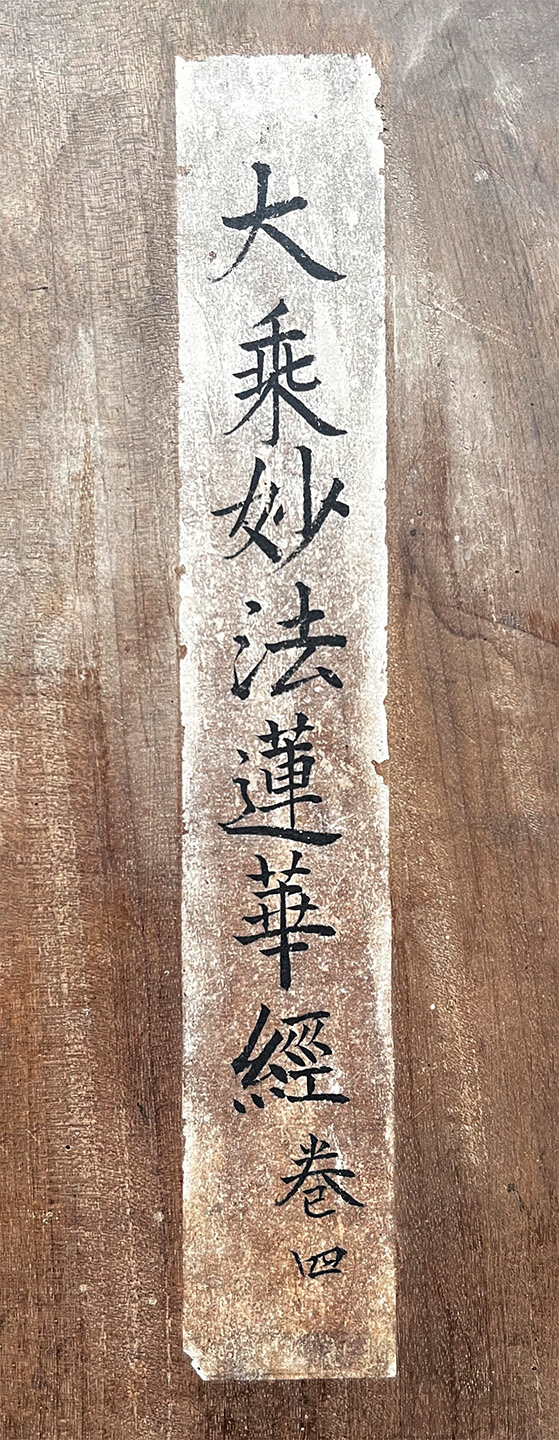 大乘妙法蓮華經卷四